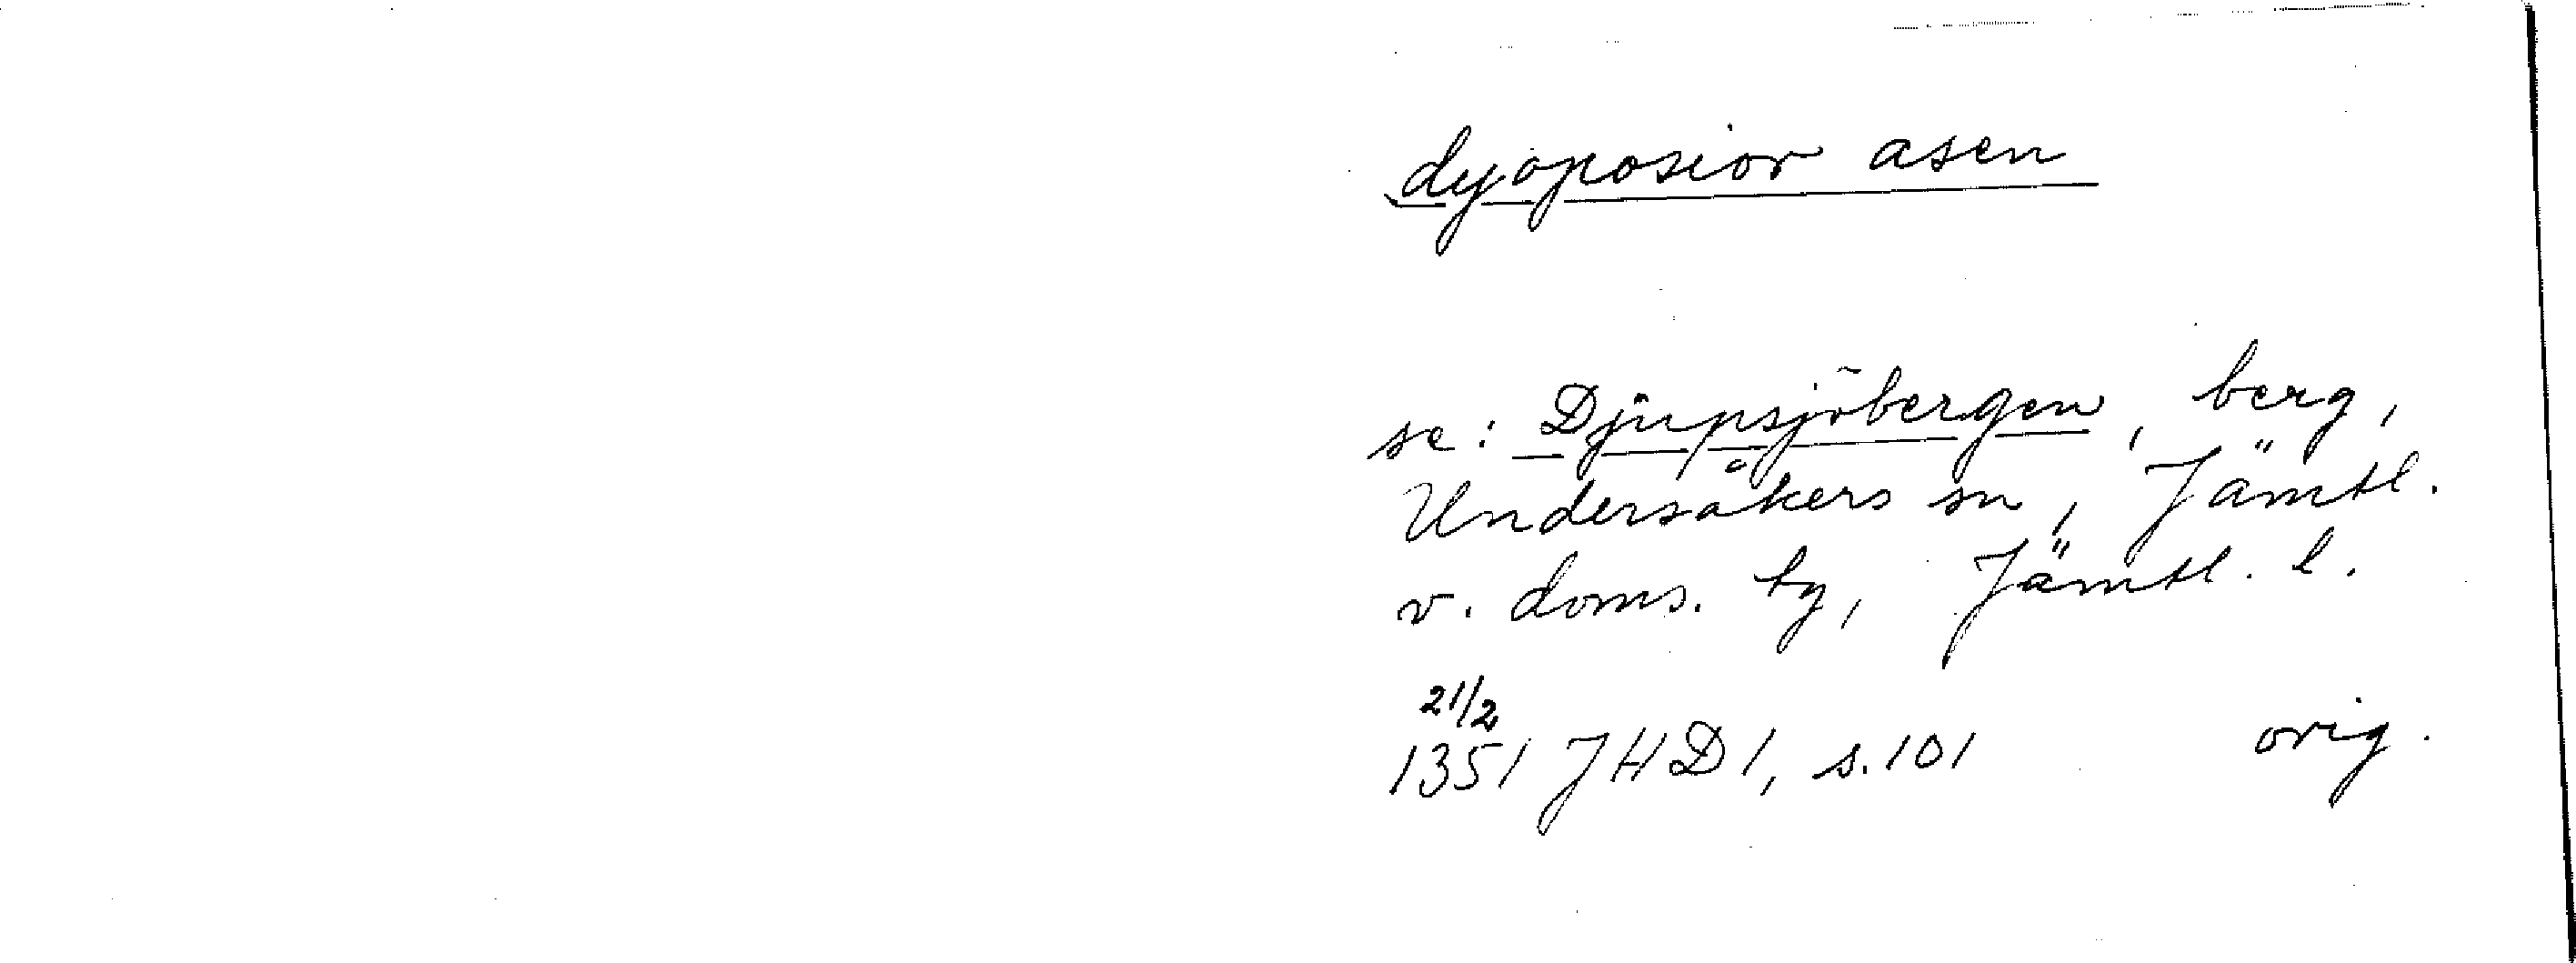 dyoposior asen
se: Djupsjöbergen, berg,
Undersåkers sn, Jämtl.
v. doms. tg, Jämtl. l.
21/2
1351 JHD 1, s. 101 orig.